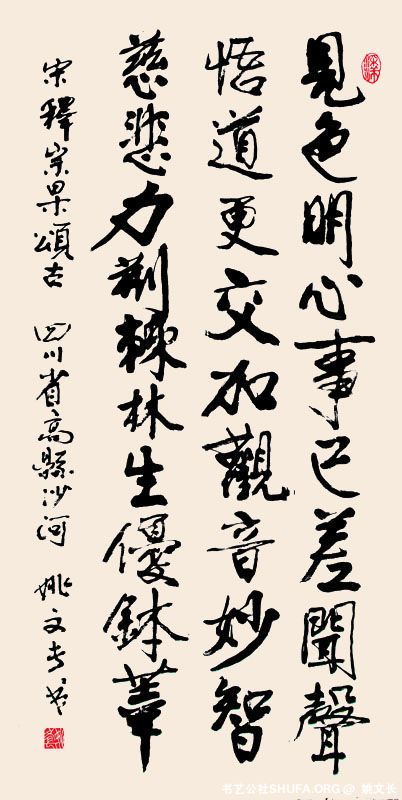 見色明心事已差聞聲
悟道更交加觀音妙智
慈悲力荆棘林生優鉢華
宋釋宗杲頌古 四川省高縣沙河 姚文长书
书艺公社SHUFA.ORG @ 姚文长